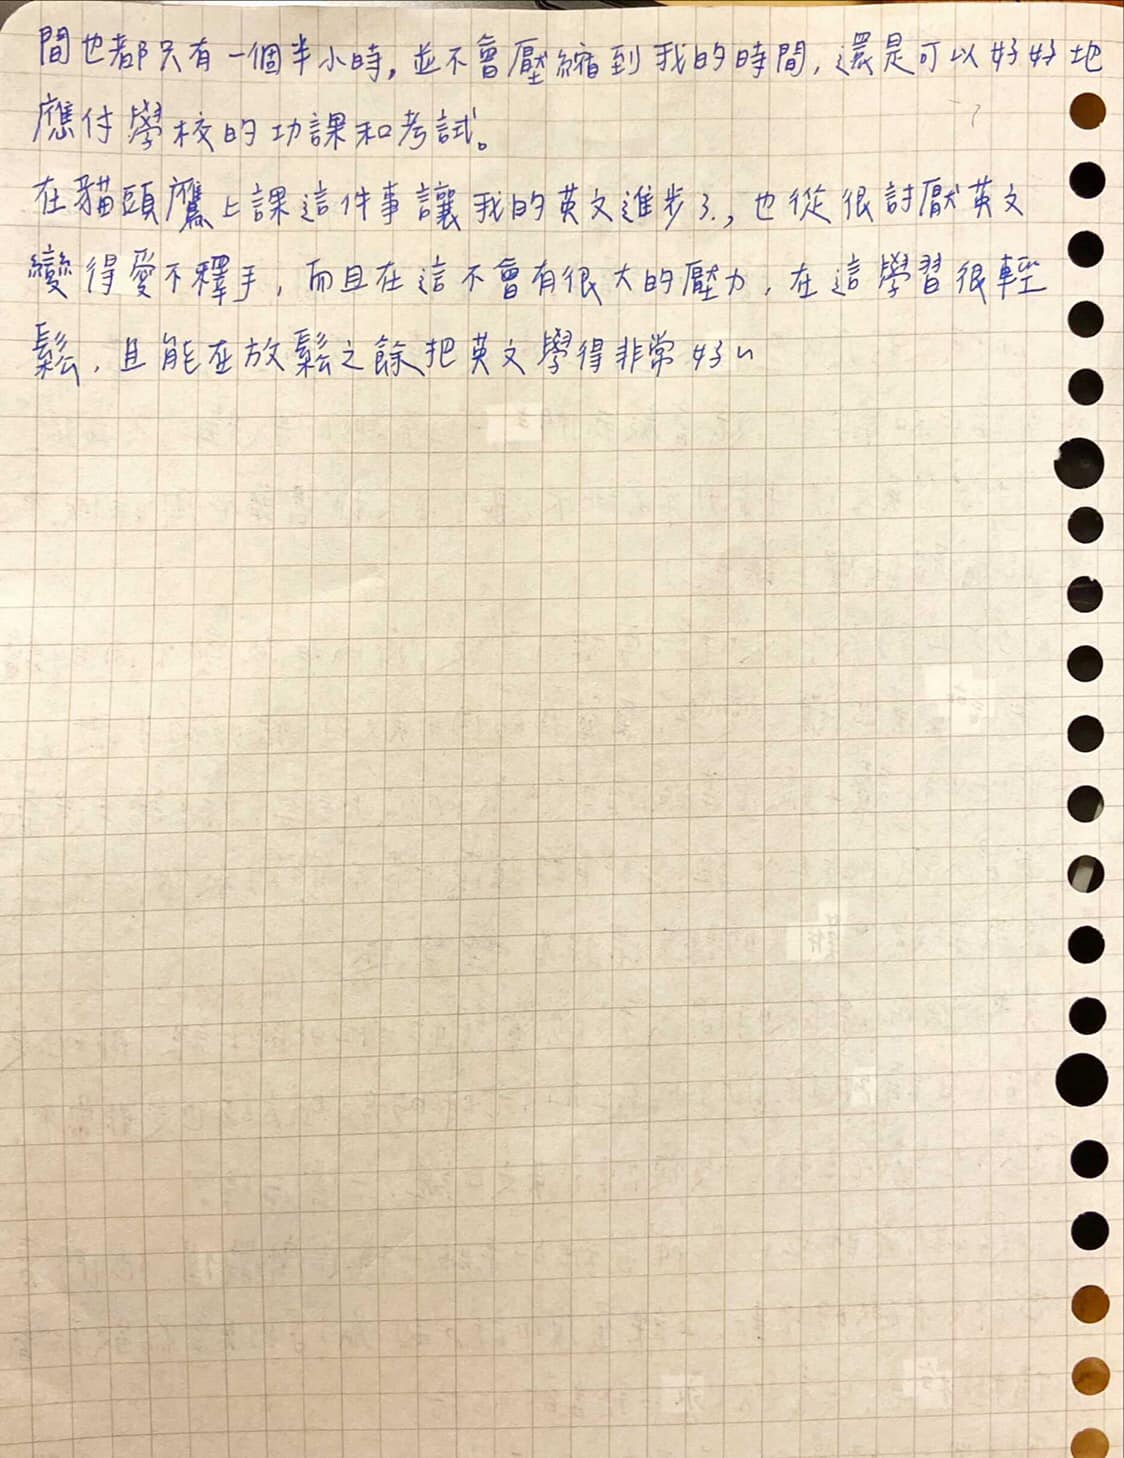 間也都只有一個半小時，並不會壓縮到我的時間，還是可以好好地
應付學校的功課和考試。
在貓頭鷹上課這件事讓我的英文進步了，也從很討厭英文
變得愛不釋手，而且在這不會有很大的壓力，在這學習很輕
鬆，且能在放鬆之餘把英文學得非常好